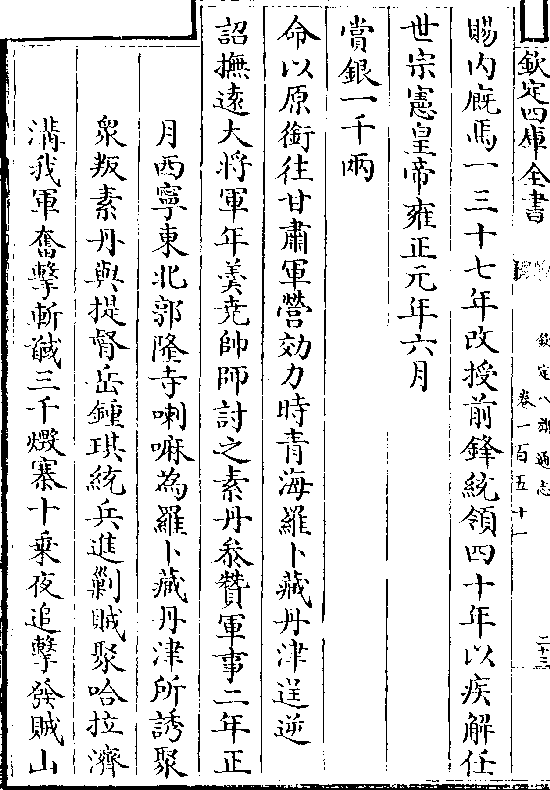 欽定四庫全書
欽定八旗通志
卷一百五十一
二十三
賜内廐馬一三十七年改授前鋒統領四十年以疾解任
世宗憲皇帝雍正元年六月
賞銀一千兩
命以原銜往甘肅軍營効力時青海羅卜藏丹津逞逆
詔撫遠大將軍年羹尭帥師討之素丹叅贊軍事二年正
月西寧東北郭隆寺喇嘛為羅卜藏丹津所誘聚
衆叛素丹與提督岳鍾琪統兵進剿賊聚哈拉濟
溝我軍奮擊斬馘三千燬寨十乗夜追擊發賊山